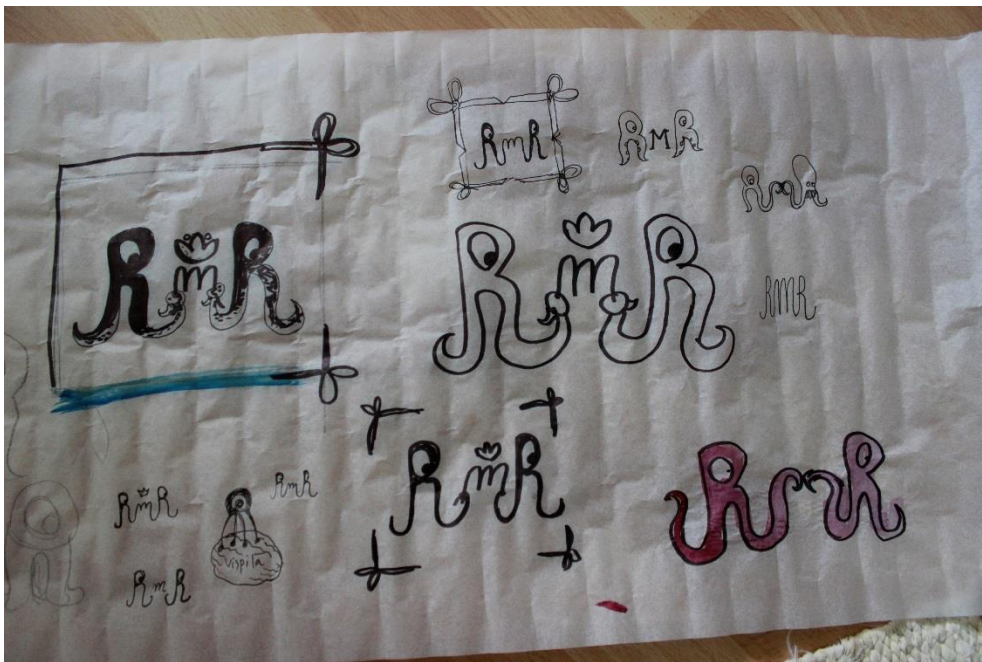 RmR
RMR
RmR
RmR
RmR
RMR
RmR
RmR
RmR
RmR
vispila
RmR